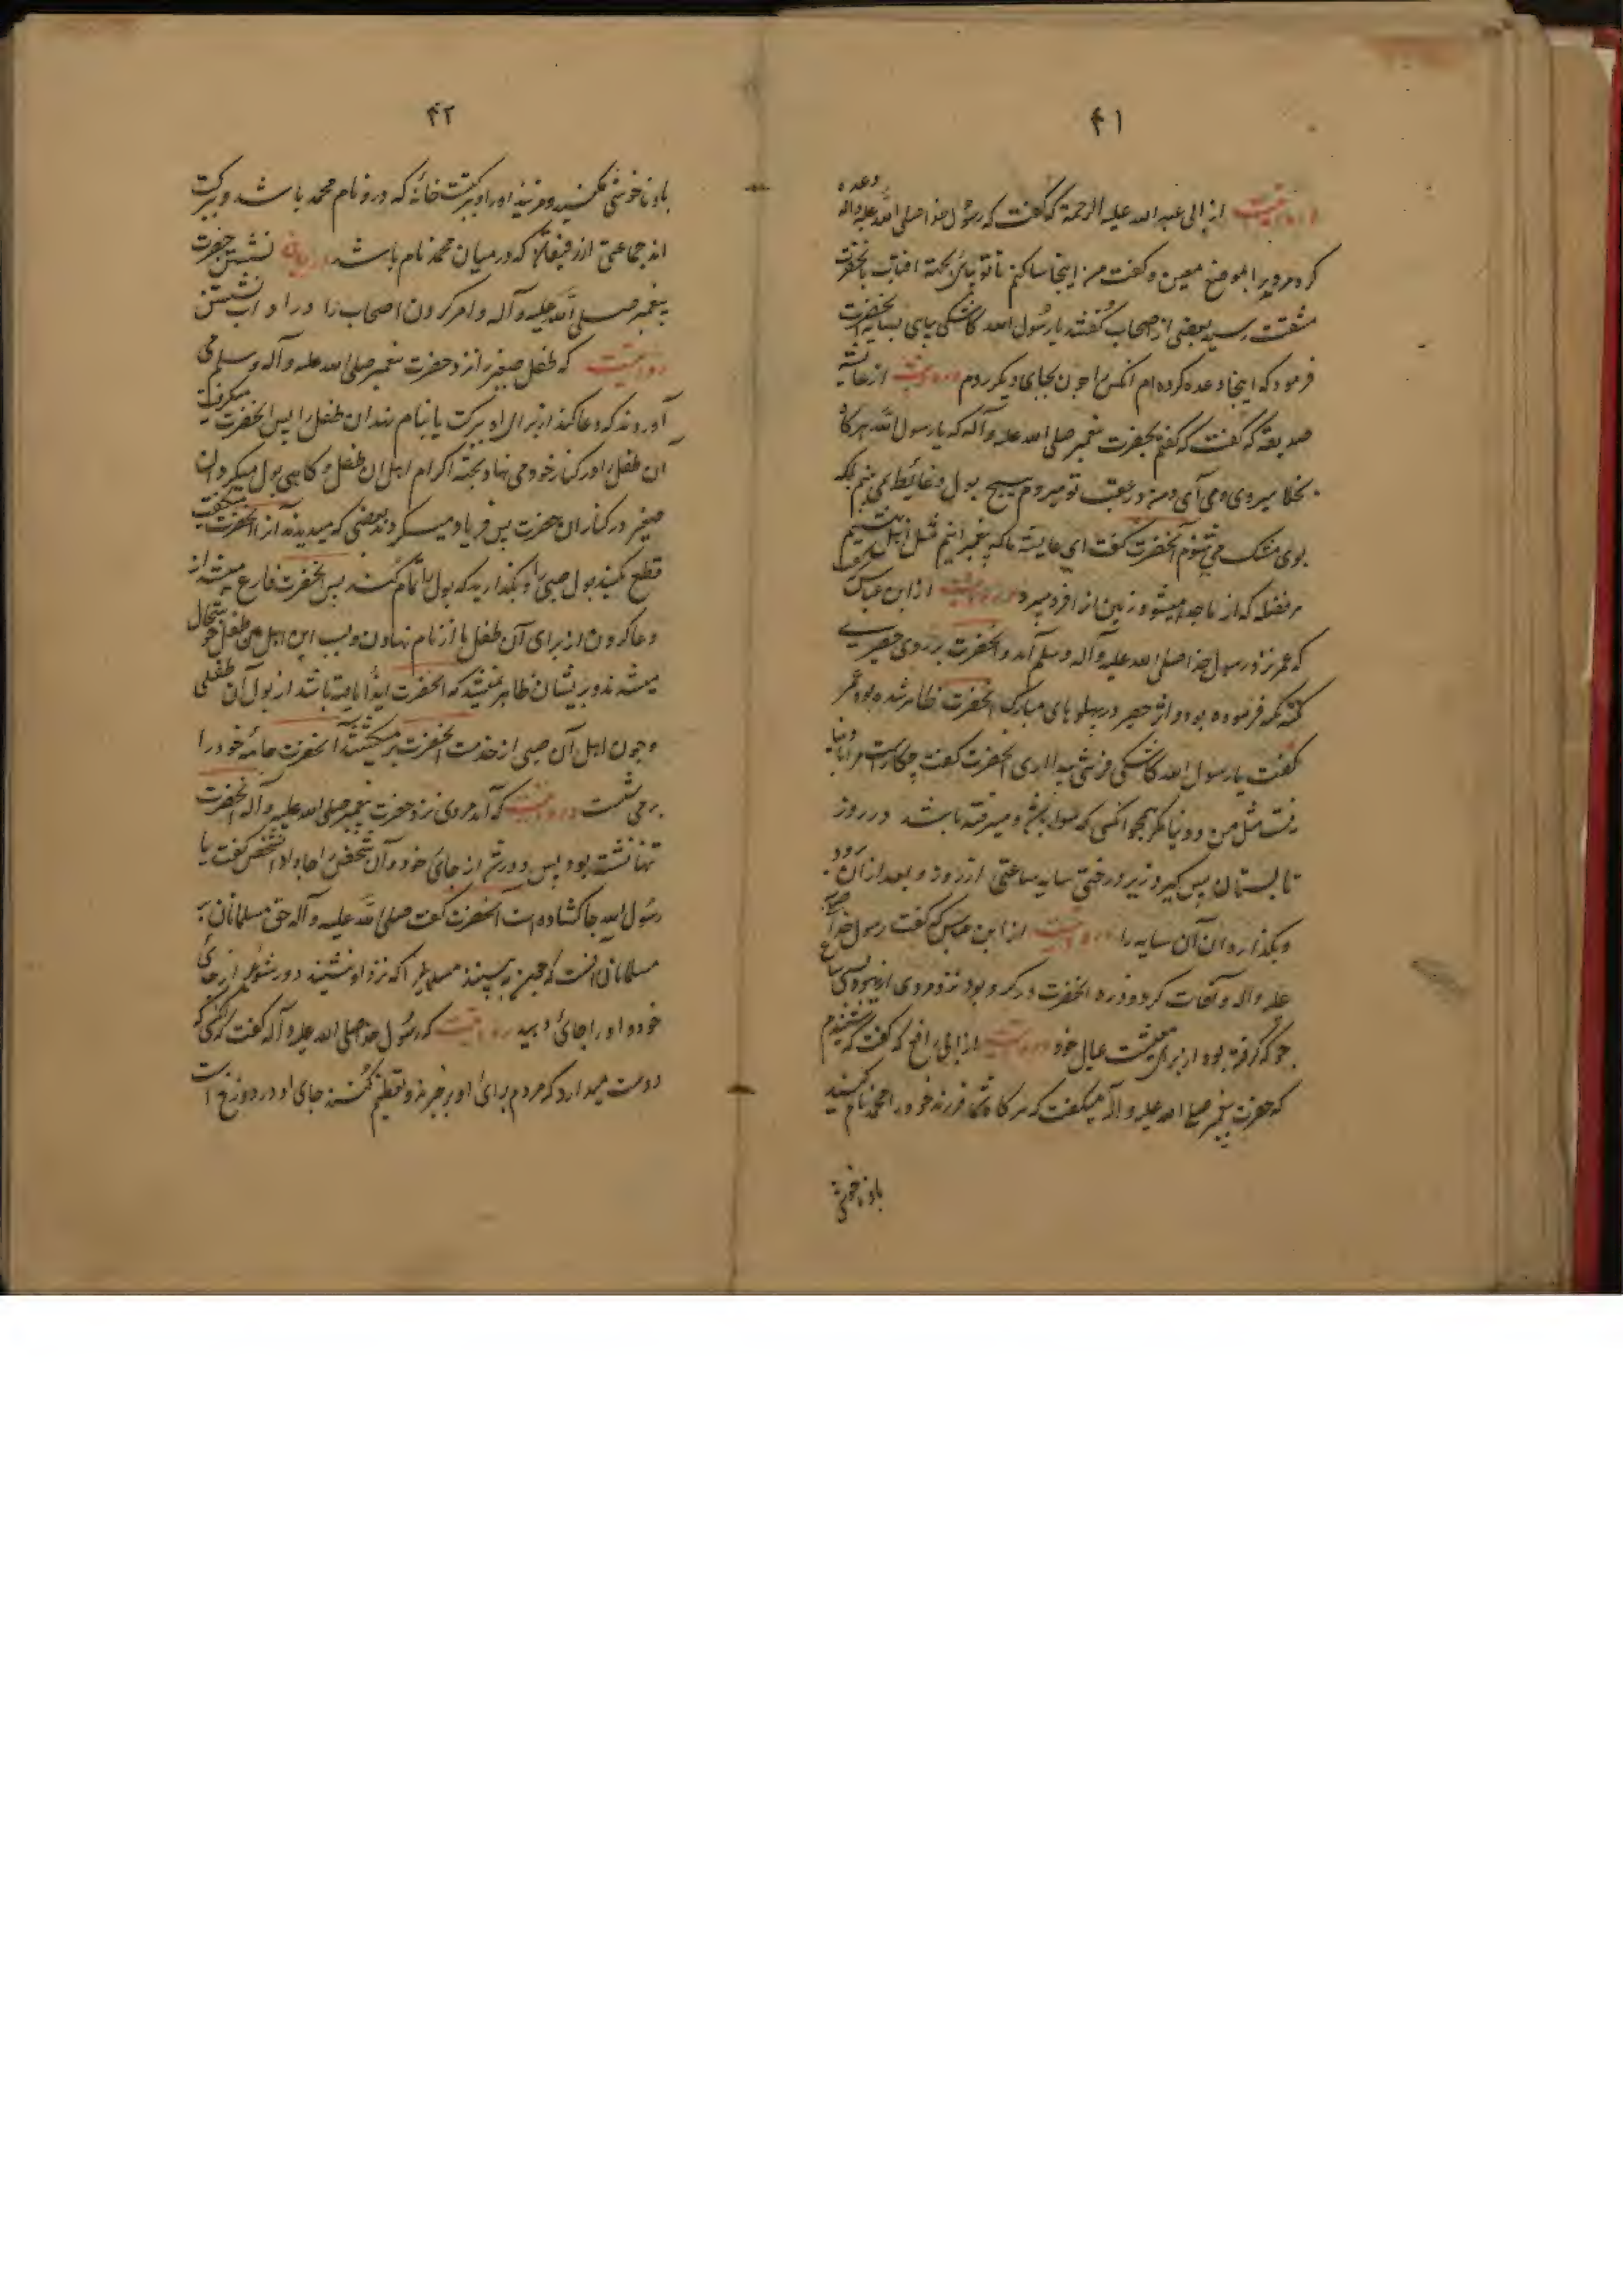 ۴۱
وعده
از ابی عبد الله علیه الرحمة که گفت که رسول خدا صلی الله علیه واله
کرد مردیرا بموضع معین و گفت من اینجا ساکنم تا تو بیائی بجهة افتاب بانحضرت
مشقت رسید بعضی از اصحاب گفتند یا رسول الله کاشکی بیای بسایه انحضرت
فرمود که اینجا وعده کرده ام انکس را چون بجای دیگر روم در روایت از عایشه
صدیقه که گفت که گفتم بحضرت پیغمبر صلی الله علیه و آله که یا رسول الله هرگاه
بخلا میروی و می آی و من در عقب تو میروم هیچ بول و غائط نمی بینم بلکه
بوی مشک می شنوم آنحضرت گفت ای عایشه ما که پیغمبرانیم مثل اهل بهشتیم
هر فضله که از ما جدا میشود زمین انرا فرو میبرد در روایت از ابن عباس
که عمر نزد رسول خدا صلی الله علیه و آله وسلم آمد و انحضرت بر روی حصیری
تکیه فرموده بود و اثر حصیر در پهلوهای مبارک انحضرت ظاهر شده بود عمر
گفت یا رسول الله کاشکی فرشی میداری انحضرت گفت چکارست مرا با دنیا
نیست مثل من و دنیا مگر همچو انکسی که سواره میرفته باشد در روز
تابستان پس گیرد زیر درختی سایه ساعتی از روز و بعد از آن برود
و بگذارد آن سایه را در روایت از ابن عباس که گفت رسول خدا صلی
علیه واله وفات کرد و زره انحضرت در گرو بود نزد مردی از یهود بسی صاع
جو که گرفته بود از برای معیشت عیال خود در روایت از ابی رافع که گفت که شنیدم
که حضرت پیغمبر صلی الله علیه و اله میگفت که هرگاه شما فرزند خود را محمد نام کنید
باو ناخوشی
۴۲
باو ناخوشی مکنید و مزنید او را و برکتست خانه که درو نام محمد باشد و برکت
اند جماعتی از رفیقان که در میان محمد نام باشد نشستن حضرت
پیغمبر صلی الله علیه و آله و امر کردن اصحاب را در اداب نشستن
روایت که طفل صغیر را نزد حضرت پیغمبر صلی الله علیه وآله وسلم می
آوردند که دعا کند از برای او ببرکت یا بنام نهد ان طفل را پس انحضرت میگرفت
آن طفل را و در کنار خود می نهاد بجهة اکرام اهل ان طفل و گاهی بول میکرد ان
صغیر در کنار ان حضرت پس فریاد میکردند بعضی که میدیدند انرا انحضرت میگفت
قطع مکنید بول صبی را و بگذارید که بول را تمام کند پس انحضرت فارغ میشد از
دعا کردن از برای آن طفل یا از نام نهادن و اهل ان طفل خوشحال
میشدند و بریشان ظاهر نمیشد که انحضرت ایذا یافته باشد از بول آن طفلی
و چون اهل آن صبی از خدمت انحضرت بر میگشتند انحضرت جامه خود را
می شست در روایت که آمد مردی نزد حضرت پیغمبر صلی الله علیه و آله انحضرت
تنها نشسته بود پس دور شد از جای خود و آن شخص را جا داد ان شخص گفت یا
رسول الله جا گشاده است آنحضرت گفت صلی الله علیه و آله حق مسلمانان بر
مسلمانان انست که چون به بینند مسلمانی را که نزد او نشیند دور شود از جای
خود و او را جائی دهد روایت که رسول خدا صلی الله علیه و آله گفت که کسی که
دوست میدارد که مردم برای او برخیزند و تعظیم کنند جای او در دوزخ است